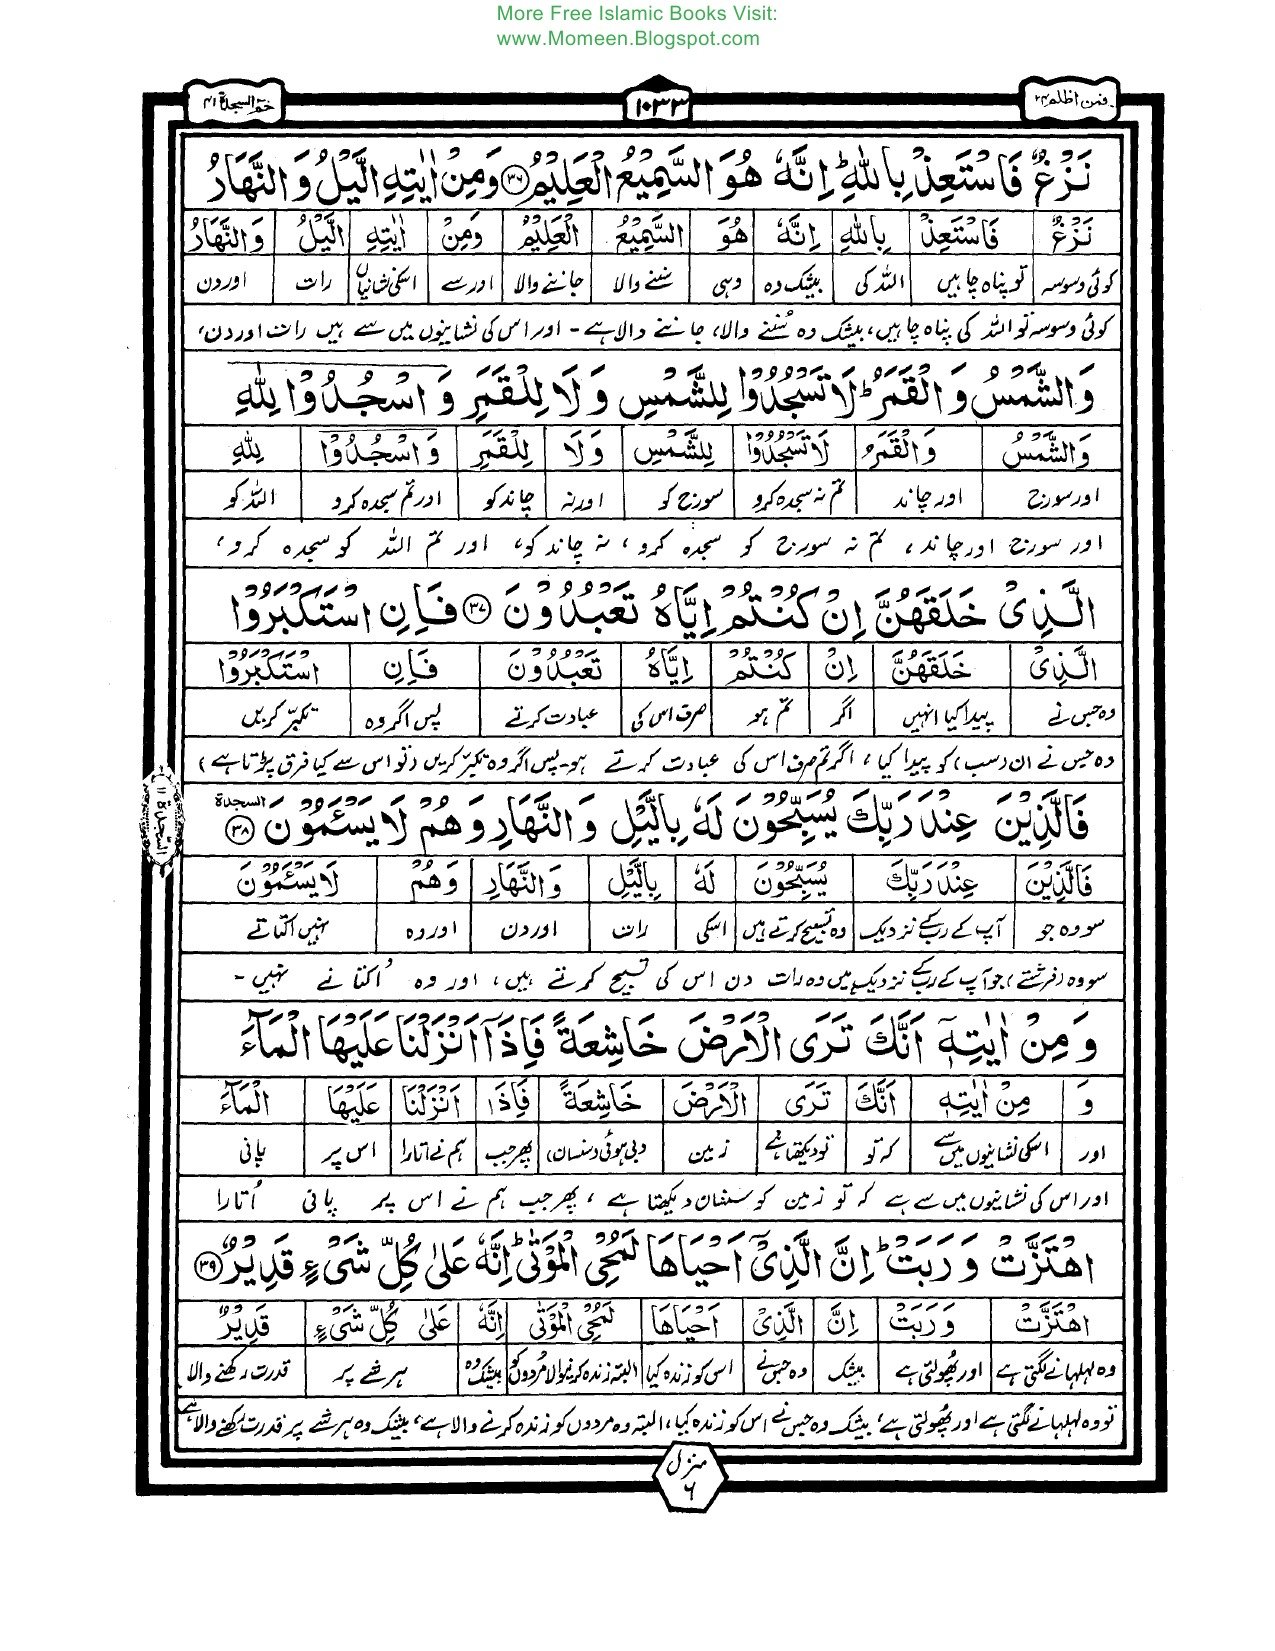 More Free Islamic Books Visit:
www.Momeen.Blogspot.com
فمن اظلم ۲۴ ۱۰۳۳ حٰمٓ السجدة ۴۱
نَزْغٌ فَاسْتَعِذْ بِاللّٰهِ ؕ اِنَّهٗ هُوَ السَّمِيْعُ الْعَلِيْمُ ۳۶ وَمِنْ اٰيٰتِهِ الَّيْلُ وَالنَّهَارُ
نَزْغٌ فَاسْتَعِذْ بِاللّٰهِ اِنَّهٗ هُوَ السَّمِيْعُ الْعَلِيْمُ وَمِنْ اٰيٰتِهِ الَّيْلُ وَالنَّهَارُ
کوئی وسوسہ تو پناہ چاہیں اللہ کی بیشک وہ وہی سننے والا جاننے والا اور سے اسکی نشانیاں رات اور دن
کوئی وسوسہ تو اللہ کی پناہ چاہیں، بیشک وہ سُننے والا، جاننے والا ہے - اور اس کی نشانیوں میں سے ہیں رات اور دن،
وَالشَّمْسُ وَالْقَمَرُ ؕ لَا تَسْجُدُوْا لِلشَّمْسِ وَلَا لِلْقَمَرِ وَاسْجُدُوْا لِلّٰهِ
وَالشَّمْسُ وَالْقَمَرُ لَا تَسْجُدُوْا لِلشَّمْسِ وَلَا لِلْقَمَرِ وَاسْجُدُوْا لِلّٰهِ
اور سورج اور چاند تم نہ سجدہ کرو سورج کو اور نہ چاند کو اور تم سجدہ کرو اللہ کو
اور سورج اور چاند، تم نہ سورج کو سجدہ کرو، نہ چاند کو، اور تم اللہ کو سجدہ کرو،
الَّذِیْ خَلَقَهُنَّ اِنْ كُنْتُمْ اِيَّاهُ تَعْبُدُوْنَ ۳۷ فَاِنِ اسْتَكْبَرُوْا
الَّذِیْ خَلَقَهُنَّ اِنْ كُنْتُمْ اِيَّاهُ تَعْبُدُوْنَ فَاِنِ اسْتَكْبَرُوْا
وہ جس نے پیدا کیا انہیں اگر تم ہو صرف اس کی عبادت کرتے پس اگر وہ تکبر کریں
وہ جس نے ان (سب) کو پیدا کیا، اگر تم صرف اس کی عبادت کرتے ہو۔ پس اگر وہ تکبر کریں (تو اس سے کیا فرق پڑتا ہے)
فَالَّذِيْنَ عِنْدَ رَبِّكَ يُسَبِّحُوْنَ لَهٗ بِالَّيْلِ وَالنَّهَارِ وَهُمْ لَا يَسْئَمُوْنَ ۳۸ السجدة
فَالَّذِيْنَ عِنْدَ رَبِّكَ يُسَبِّحُوْنَ لَهٗ بِالَّيْلِ وَالنَّهَارِ وَهُمْ لَا يَسْئَمُوْنَ
سو وہ جو آپ کے رب کے نزدیک وہ تسبیح کرتے ہیں اسکی رات اور دن اور وہ نہیں اکتاتے
سو وہ (فرشتے) جو آپ کے رب کے نزدیک ہیں وہ رات دن اس کی تسبیح کرتے ہیں، اور وہ اُکتاتے نہیں -
السجدة ۱۱
وَمِنْ اٰيٰتِهٖٓ اَنَّكَ تَرَى الْاَرْضَ خَاشِعَةً فَاِذَآ اَنْزَلْنَا عَلَيْهَا الْمَآءَ
وَ مِنْ اٰيٰتِهٖٓ اَنَّكَ تَرَى الْاَرْضَ خَاشِعَةً فَاِذَا اَنْزَلْنَا عَلَيْهَا الْمَآءَ
اور اسکی نشانیوں میں سے کہ تو تو دیکھتا ہے زمین دبی ہوئی (سنسان) پھر جب ہم نے اتارا اس پر پانی
اور اس کی نشانیوں میں سے ہے کہ تو زمین کو سنسان دیکھتا ہے، پھر جب ہم نے اس پر پانی اُتارا
اهْتَزَّتْ وَرَبَتْ ؕ اِنَّ الَّذِیْٓ اَحْيَاهَا لَمُحْیِ الْمَوْتٰى ؕ اِنَّهٗ عَلٰى كُلِّ شَیْءٍ قَدِيْرٌ ۳۹
اهْتَزَّتْ وَرَبَتْ اِنَّ الَّذِیْٓ اَحْيَاهَا لَمُحْیِ الْمَوْتٰى اِنَّهٗ عَلٰى كُلِّ شَیْءٍ قَدِيْرٌ
وہ لہلہانے لگتی ہے اور پھُولتی ہے بیشک وہ جس نے اس کو زندہ کیا البتہ زندہ کرنیوالا مُردوں کو بیشک وہ ہر شے پر قدرت رکھنے والا
تو وہ لہلہانے لگتی ہے اور پھُولتی ہے، بیشک وہ جس نے اس کو زندہ کیا، البتہ وہ مردوں کو زندہ کرنے والا ہے، بیشک وہ ہر شے پر قدرت رکھنے والا ہے
منزل ۶